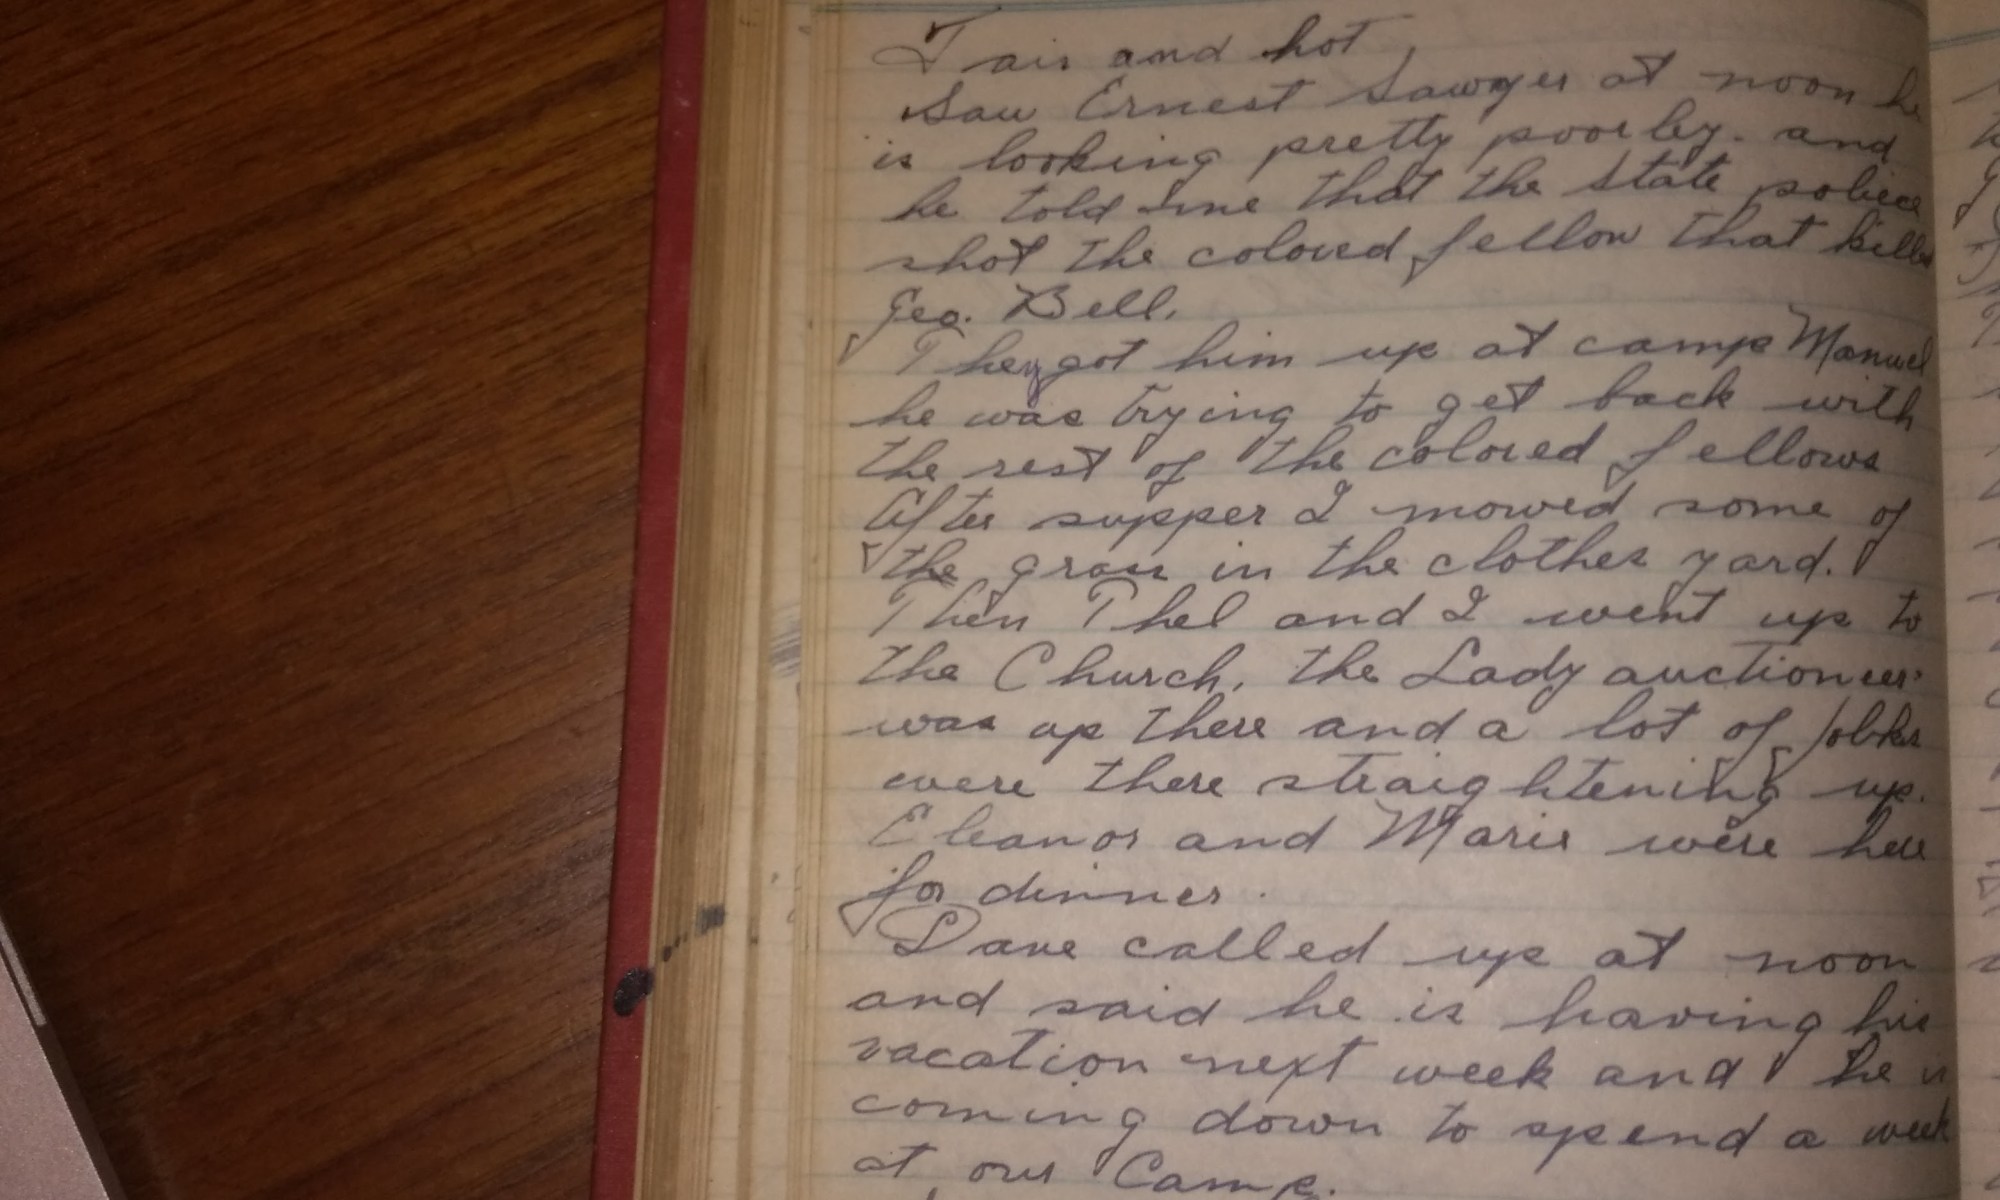 Fair and hot
Saw Ernest Sawyer at noon he
is looking pretty poorley. and
he told me that the State poliece
shot the colored fellow that killed
Geo. Bell.
They got him up at camp Manuel
he was trying to get back with
the rest of the colored fellows
After supper I mowed some of
the grass in the clothes yard.
Then Thel and I went up to
the Church, the Lady auctioneer
was up there and a lot of folks
were there straightening up.
Eleanor and Marie were here
for dinner.
Dave called up at noon
and said he is having his
vacation next week and he is
coming down to spend a week
at our Camp.